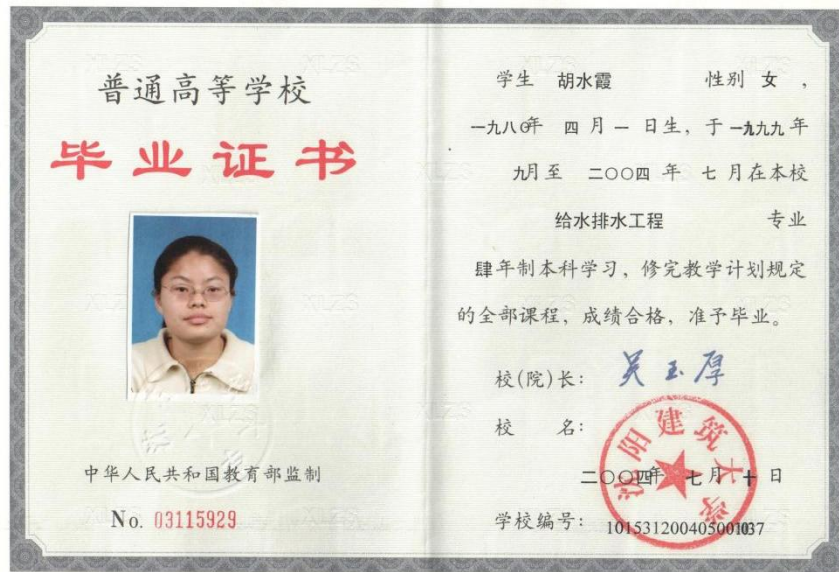 普通高等学校
毕业证书
中华人民共和国教育部监制
No. 03115929
学生 胡水霞 性别 女，
一九八〇年 四月一日生，于一九九九年
九月至 二〇〇四年 七月在本校
给水排水工程 专业
肆年制本科学习，修完教学计划规定
的全部课程，成绩合格，准予毕业。
校(院)长： 吴玉厚
校 名：
沈阳建筑大学
二〇〇四年 七月 十日
学校编号：